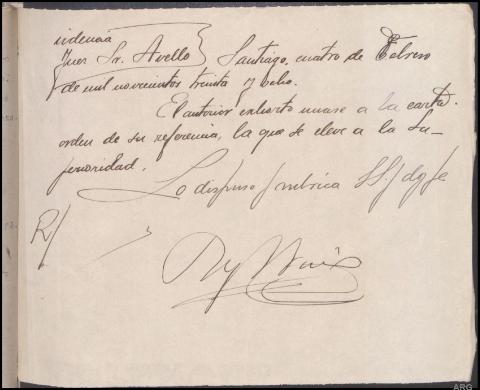 videncia
Juez Sr. Avello Santiago, cuatro de Febrero
de mil novecientos treinta y ocho.
El anterior exhorto unase a la carta
orden de su referencia, la que se eleve a la Su-
perioridad.
Lo dispuso y rubrica SSª/ doy fe
R/
ARG